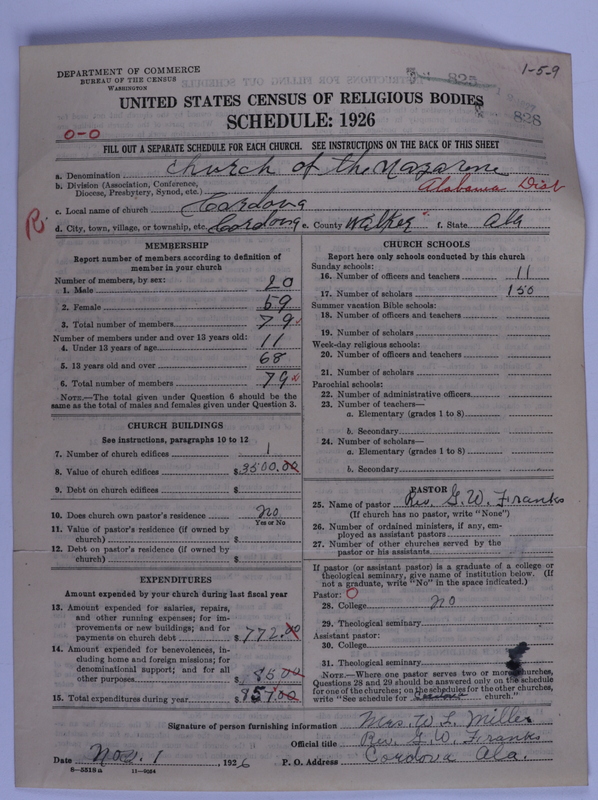 DEPARTMENT OF COMMERCE
BUREAU OF THE CENSUS
WASHINGTON
825
1-59
828
UNITED STATES CENSUS OF RELIGIOUS BODIES
SCHEDULE: 1926
0-0
FILL OUT A SEPARATE SCHEDULE FOR EACH CHURCH. SEE INSTRUCTIONS ON THE BACK OF THIS SHEET
a. Denomination Church of the Nazarene
b. Division (Association, Conference, Diocese, Presbytery, Synod, etc.) Alabama Dist
c. Local name of church Cordova
R. d. City, town, village, or township, etc. Cordova e. County Walker f. State Ala
MEMBERSHIP
Report number of members according to definition of
member in your church
Number of members, by sex:
1. Male 20
2. Female 59
3. Total number of members 79
Number of members under and over 13 years old:
4. Under 13 years of age 11
5. 13 years old and over 68
6. Total number of members 79
NOTE.—The total given under Question 6 should be the
same as the total of males and females given under Question 3.
CHURCH BUILDINGS
See instructions, paragraphs 10 to 12
7. Number of church edifices 1
8. Value of church edifices $3500.00
9. Debt on church edifices $
10. Does church own pastor's residence no
Yes or No
11. Value of pastor's residence (if owned by
church) $
12. Debt on pastor's residence (if owned by
church) $
EXPENDITURES
Amount expended by your church during last fiscal year
13. Amount expended for salaries, repairs,
and other running expenses; for im-
provements or new buildings; and for
payments on church debt $772.00
14. Amount expended for benevolences, in-
cluding home and foreign missions; for
denominational support; and for all
other purposes $85.00
15. Total expenditures during year $857.00
CHURCH SCHOOLS
Report here only schools conducted by this church
Sunday schools:
16. Number of officers and teachers 11
17. Number of scholars 150
Summer vacation Bible schools:
18. Number of officers and teachers
19. Number of scholars
Week-day religious schools:
20. Number of officers and teachers
21. Number of scholars
Parochial schools:
22. Number of administrative officers
23. Number of teachers—
a. Elementary (grades 1 to 8)
b. Secondary
24. Number of scholars—
a. Elementary (grades 1 to 8)
b. Secondary
PASTOR
25. Name of pastor Rev. G. W. Franks
(If church has no pastor, write "None")
26. Number of ordained ministers, if any, em-
ployed as assistant pastors
27. Number of other churches served by the
pastor or his assistants
If pastor (or assistant pastor) is a graduate of a college or
theological seminary, give name of institution below. (If
not a graduate, write "No" in the space indicated.)
Pastor: O
28. College no
29. Theological seminary
Assistant pastor:
30. College
31. Theological seminary
NOTE.—Where one pastor serves two or more churches,
Questions 28 and 29 should be answered only on the schedule
for one of the churches; on the schedules for the other churches,
write "See schedule for Cordova church."
Signature of person furnishing information Mrs. W. L. Miller
Official title Rev. G. W. Franks
Date Nov. 1, 1926 P. O. Address Cordova Ala.
8-5518a 11-9024